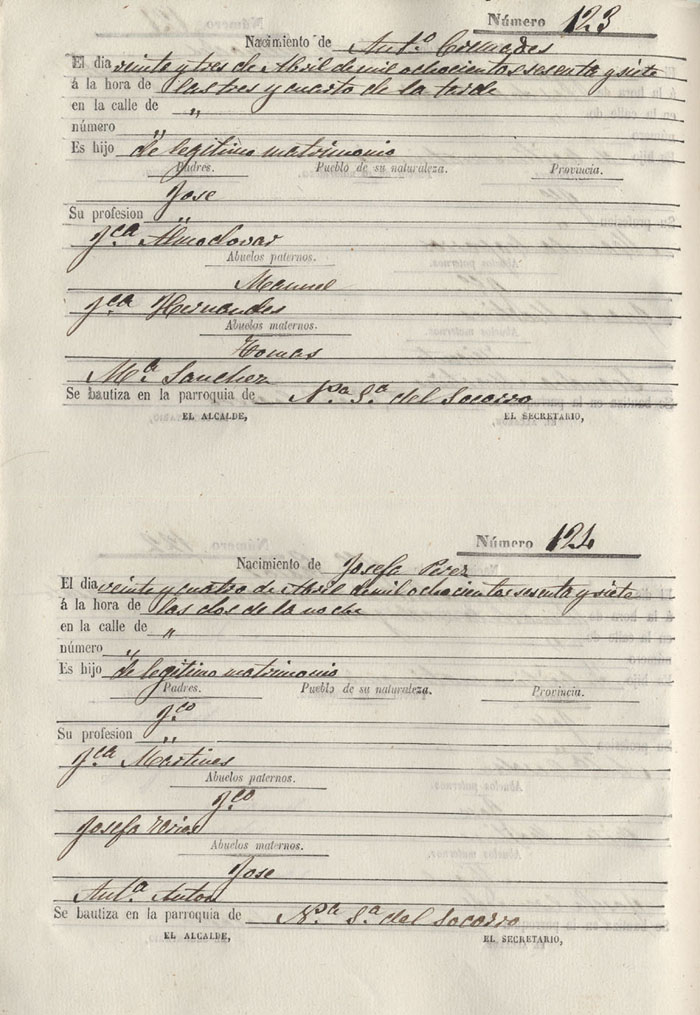 Número 123
Nacimiento de Ant.º
El dia veinte y tres de Abril de mil ochocientos sesenta y siete
á la hora de las tres y cuarto de la tarde
en la calle de "
número "
Es hijo de legitimo matrimonio
Padres. Pueblo de su naturaleza. Provincia.
Jose
Su profesion "
Fca Almodovar
Abuelos paternos.
Manuel
Fca Hernandes
Abuelos maternos.
Tomas
Mª. Sanchez
Se bautiza en la parroquia de Nª Sª del Socorro
EL ALCALDE, EL SECRETARIO,
Número 124
Nacimiento de Josefa Perez
El dia veinte y cuatro de Abril de mil ochocientos sesenta y siete
á la hora de las dos de la noche
en la calle de "
número "
Es hijo de legitimo matrimonio
Padres. Pueblo de su naturaleza. Provincia.
Fco
Su profesion "
Fca Martines
Abuelos paternos.
Fco
Josefa
Abuelos maternos.
Jose
Antª Anton
Se bautiza en la parroquia de Nª Sª del Socorro
EL ALCALDE, EL SECRETARIO,